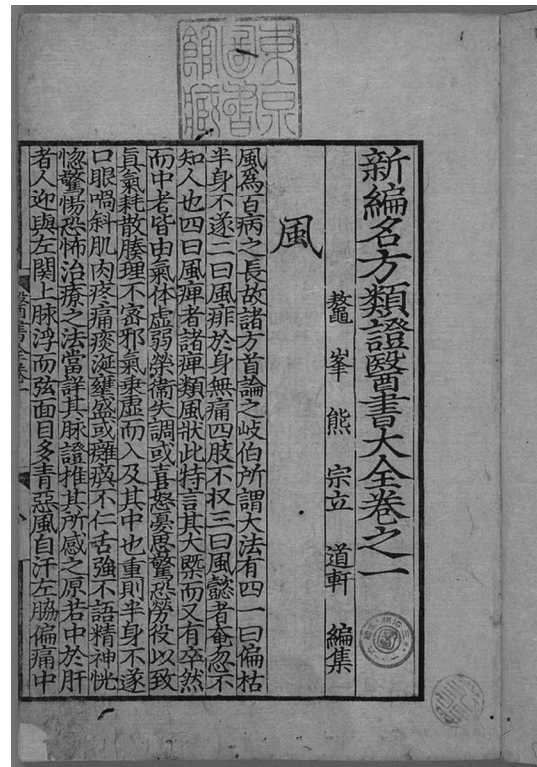 東京
圖書
館藏
新編名方類證醫書大全卷之一
鼇峯 熊 宗立 道軒 編集
風
風爲百病之長故諸方首論之岐伯所謂大法有四一曰偏枯
半身不遂二曰風痱於身無痛四肢不収三曰風懿者奄忽不
知人也四曰風痺者諸痺類風狀此特言其大槩而又有卒然
而中者皆由氣体虛弱榮衞失調或喜怒憂思驚恐勞役以致
眞氣耗散腠理不密邪氣乗虛而入及其中也重則半身不遂
口眼喎斜肌肉疼痛痰涎壅盛或癱瘓不仁舌強不語精神恍
惚驚惕恐怖治療之法當詳其脉證推其所感之原若中於肝
者人迎與左関上脉浮而弦面目多青惡風自汗左脇偏痛中
醫書大全卷一